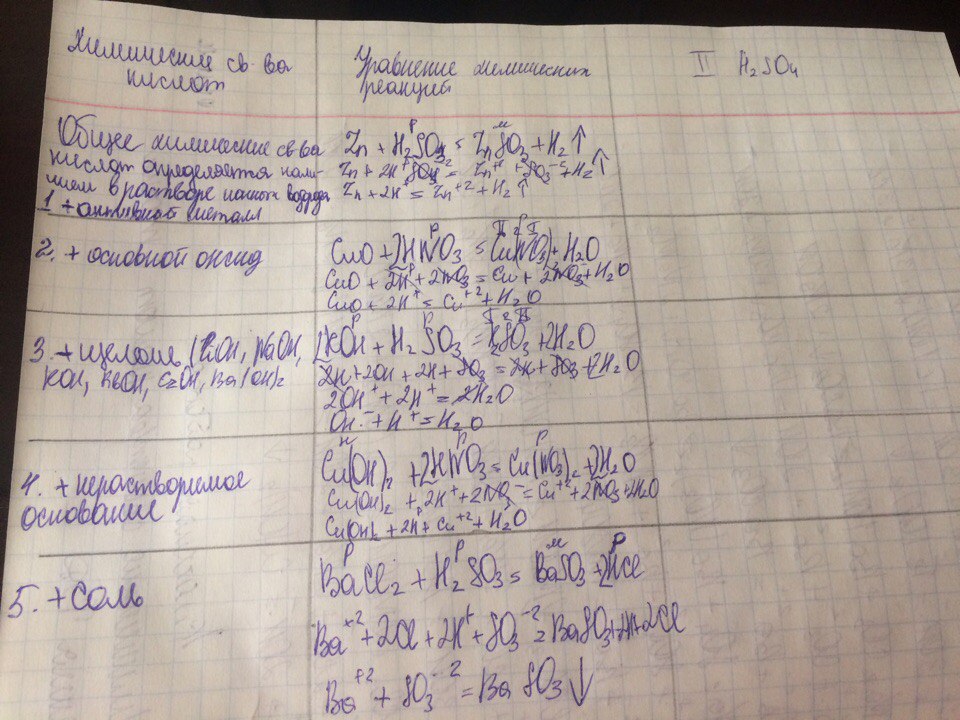 Химические св-ва кислот
Уравнение химических реакций
II H₂SO₄
Общее химические св-ва
кислот определяется нали-
чием в растворе ионов водорода
1 + активной металл
Zn + H₂SO₄ = ZnSO₃ + H₂↑
Zn + 2H⁺ = Zn⁺² + H₂↑
2. + основной оксид
CuO + 2HNO₃ = Cu(NO₃)₂ + H₂O
CuO + 2H⁺ + 2NO₃ = Cu + 2NO₃ + H₂O
CuO + 2H⁺ = Cu⁺² + H₂O
3. + щелочи (LiOH, NaOH,
KOH, RbOH, CsOH, Ba(OH)₂
2KOH + H₂SO₃ = K₂SO₃ + 2H₂O
2K + 2OH + 2H + SO₃ = 2K + SO₃ + 2H₂O
2OH⁺ + 2H⁺ = 2H₂O
OH⁻ + H⁺ = H₂O
4. + нерастворимое
основание
Cu(OH)₂ + 2HNO₃ = Cu(NO₃)₂ + 2H₂O
Cu(OH)₂ + 2H⁺ + 2NO₃⁻ = Cu⁺² + 2NO₃ + 2H₂O
Cu(OH)₂ + 2H + Cu⁺² + H₂O
5. + Соль
BaCl₂ + H₂SO₃ = BaSO₃ + 2HCl
Ba⁺² + 2Cl + 2H⁺ + SO₃⁻² = BaSO₃ + 2H + 2Cl
Ba⁺² + SO₃⁻² = BaSO₃↓